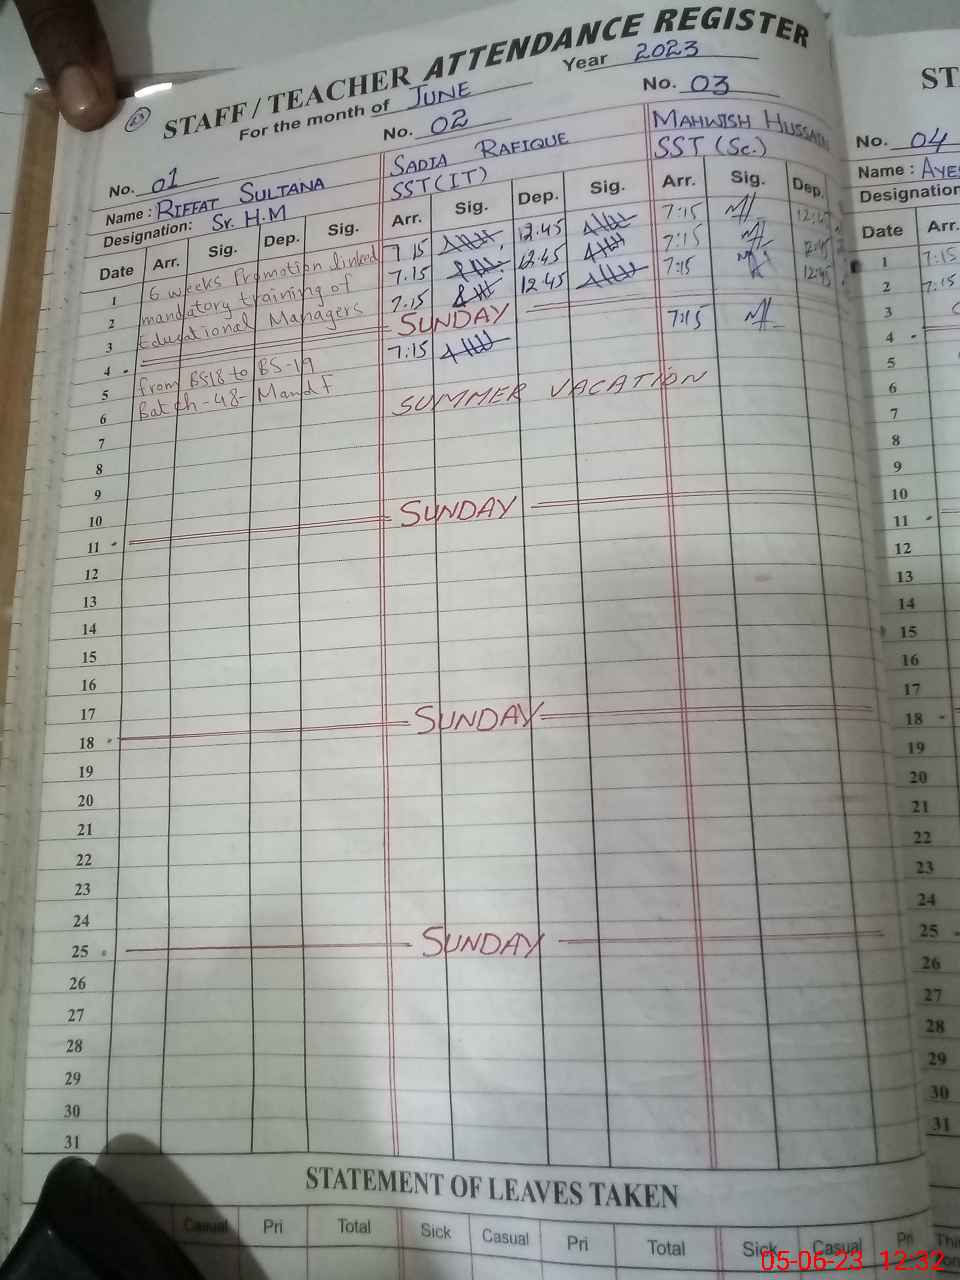 STAFF / TEACHER ATTENDANCE REGISTER
For the month of JUNE Year 2023
No. 01 No. 02 No. 03
Name : RIFFAT SULTANA SADIA RAFIQUE MAHWISH HUSSAIN
Designation: Sr. H.M SST (IT) SST (Sc.)
Date Arr. Sig. Dep. Sig. Arr. Sig. Dep. Sig. Arr. Sig. Dep.
1 6 weeks Promotion linked 7 15 12:45 7:15
2 mandatory training of 7:15 12:45 7:15 12:45
3 Educational Managers 7:15 12:45 7:15 12:45
4 SUNDAY
5 from BS18 to BS-19 7:15 7:15
6 Batch-48- Mand F SUMMER VACATION
7
8
9
10
11 SUNDAY
12
13
14
15
16
17
18 SUNDAY
19
20
21
22
23
24
25 SUNDAY
26
27
28
29
30
31
STATEMENT OF LEAVES TAKEN
Casual Pri Total Sick Casual Pri Total Sick Casual Pri
ST
No. 04
Name : AYE
Designation
Date Arr.
1 7:15
2 7:15
3
4
5
6
7
8
9
10
11
12
13
14
15
16
17
18
19
20
21
22
23
24
25
26
27
28
29
30
31
05-06-23 12:32